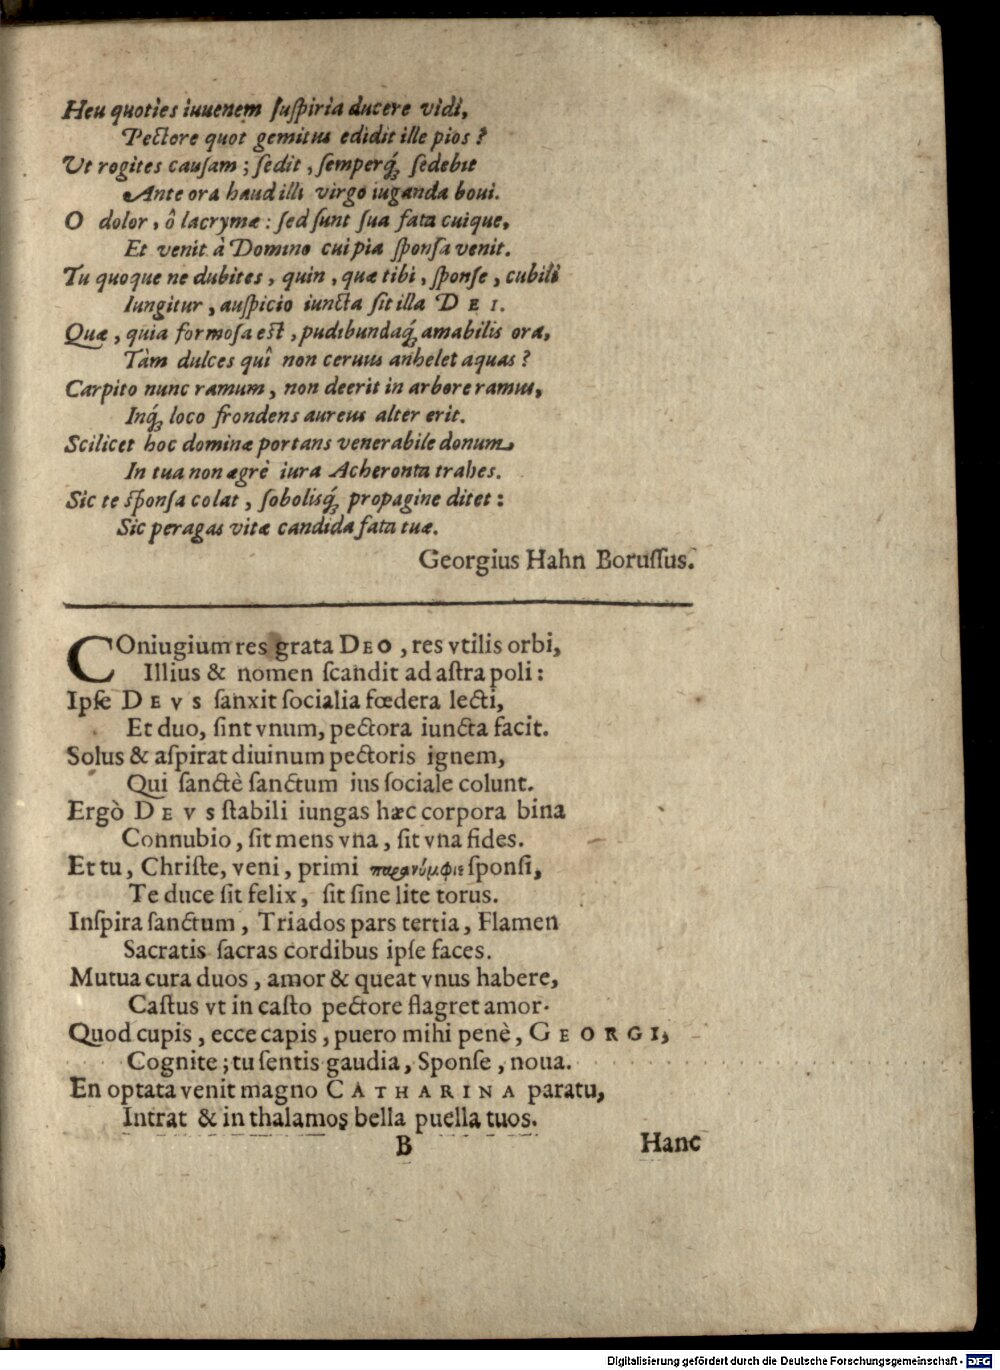 Heu quoties iuuenem ſuſpiria ducere vidi,
Pectore quot gemitus edidit ille pios?
Ut rogites cauſam; ſedit, ſemperq́; ſedebit
Ante ora haud illi virgo iuganda boui.
O dolor, ô lacrymæ: ſed ſunt ſua fata cuique,
Et venit à Domino cui pia ſponſa venit.
Tu quoque ne dubites, quin, quæ tibi, ſponſe, cubili
Iungitur, auſpicio iuncta ſit illa DEI.
Quæ, quia formoſa eſt, pudibundaq́; amabilis ora,
Tàm dulces quî non ceruus anhelet aquas?
Carpito nunc ramum, non deerit in arbore ramus,
Inq́; loco frondens aureus alter erit.
Scilicet hoc dominæ portans venerabile donum,
In tua non ægrè iura Acheronta trahes.
Sic te ſponſa colat, ſobolisq́; propagine ditet:
Sic peragas vitæ candida fata tuæ.
Georgius Hahn Boruſſus.
COniugium res grata DEO, res vtilis orbi,
Illius & nomen ſcandit ad aſtra poli:
Ipſe DEVS ſanxit ſocialia fœdera lecti,
Et duo, ſint vnum, pectora iuncta facit.
Solus & aſpirat diuinum pectoris ignem,
Qui ſanctè ſanctum ius ſociale colunt.
Ergò DEVS ſtabili iungas hæc corpora bina
Connubio, ſit mens vna, ſit vna fides.
Et tu, Chriſte, veni, primi παρανύμφιε ſponſi,
Te duce ſit felix, ſit ſine lite torus.
Inſpira ſanctum, Triados pars tertia, Flamen
Sacratis ſacras cordibus ipſe faces.
Mutua cura duos, amor & queat vnus habere,
Caſtus vt in caſto pectore flagret amor.
Quod cupis, ecce capis, puero mihi penè, GEORGI,
Cognite; tu ſentis gaudia, Sponſe, noua.
En optata venit magno CATHARINA paratu,
Intrat & in thalamos bella puella tuos.
B Hanc
Digitalisierung gefördert durch die Deutsche Forschungsgemeinschaft - DFG